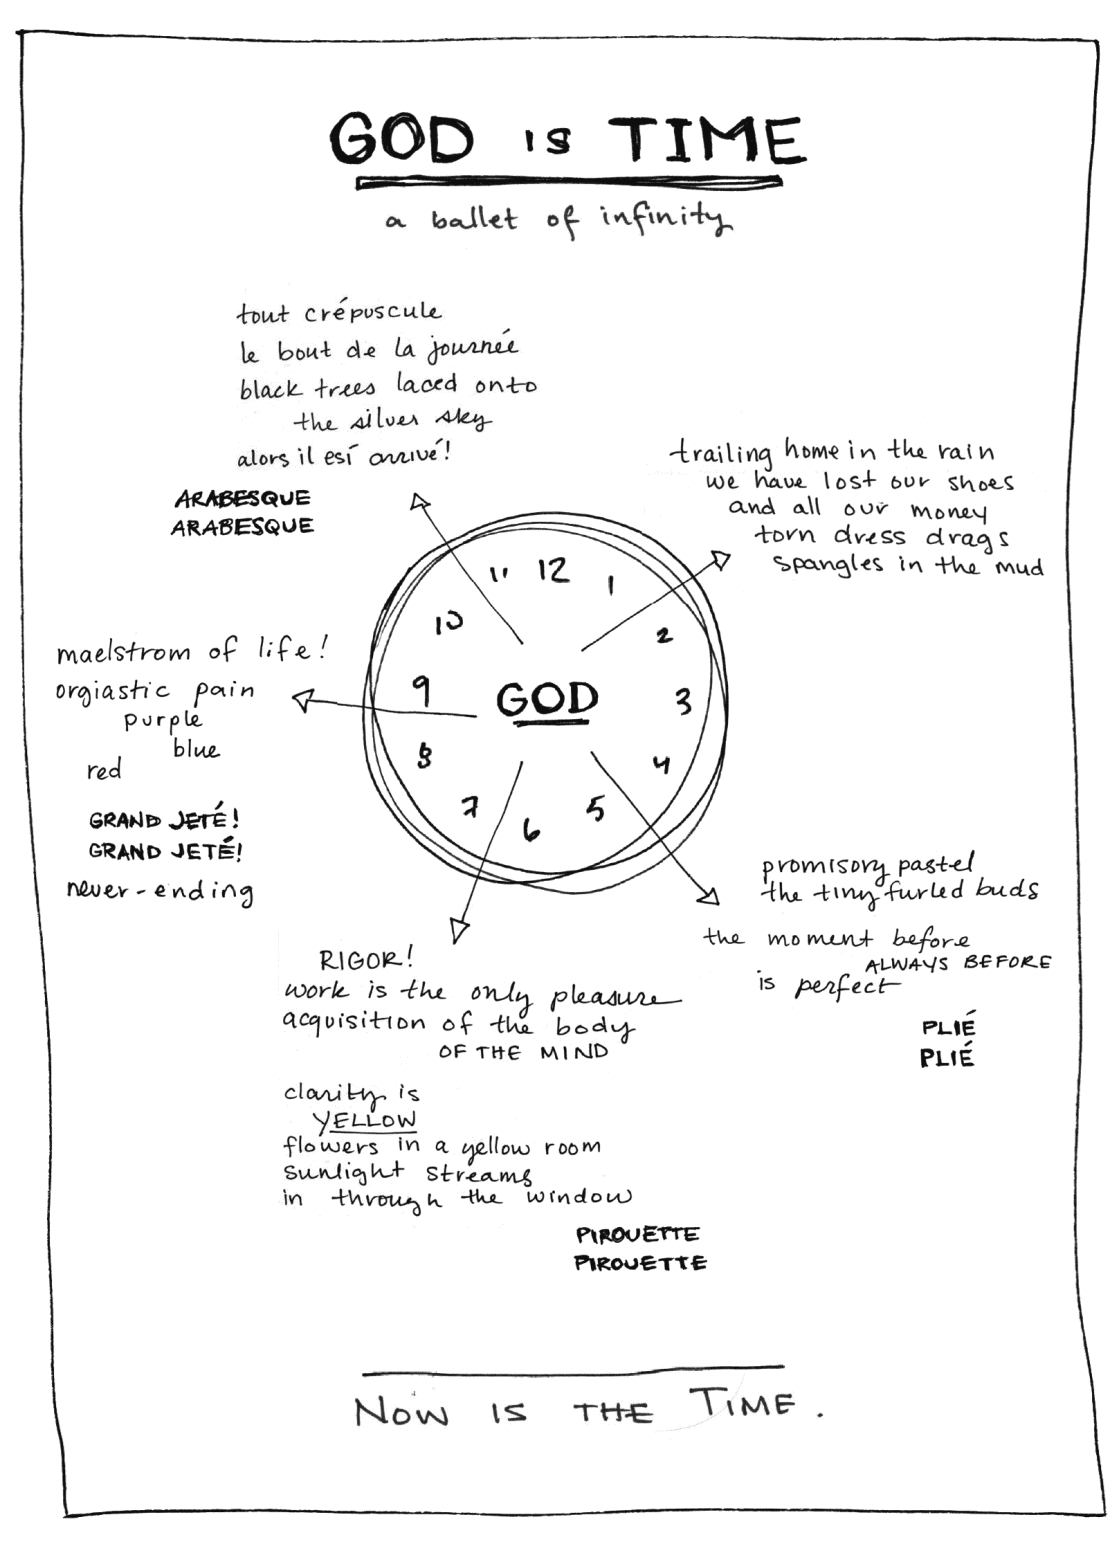 GOD IS TIME
a ballet of infinity
tout crépuscule
le bout de la journée
black trees laced onto
the silver sky
alors il est arrivé!
ARABESQUE
ARABESQUE
trailing home in the rain
we have lost our shoes
and all our money
torn dress drags
spangles in the mud
11 12 1
10 2
9 GOD 3
8 4
7 6 5
maelstrom of life!
orgiastic pain
purple
blue
red
GRAND JETÉ!
GRAND JETÉ!
never-ending
promisory pastel
the tiny furled buds
the moment before
ALWAYS BEFORE
is perfect
PLIÉ
PLIÉ
RIGOR!
work is the only pleasure
acquisition of the body
OF THE MIND
clarity is
YELLOW
flowers in a yellow room
sunlight streams
in through the window
PIROUETTE
PIROUETTE
NOW IS THE TIME.